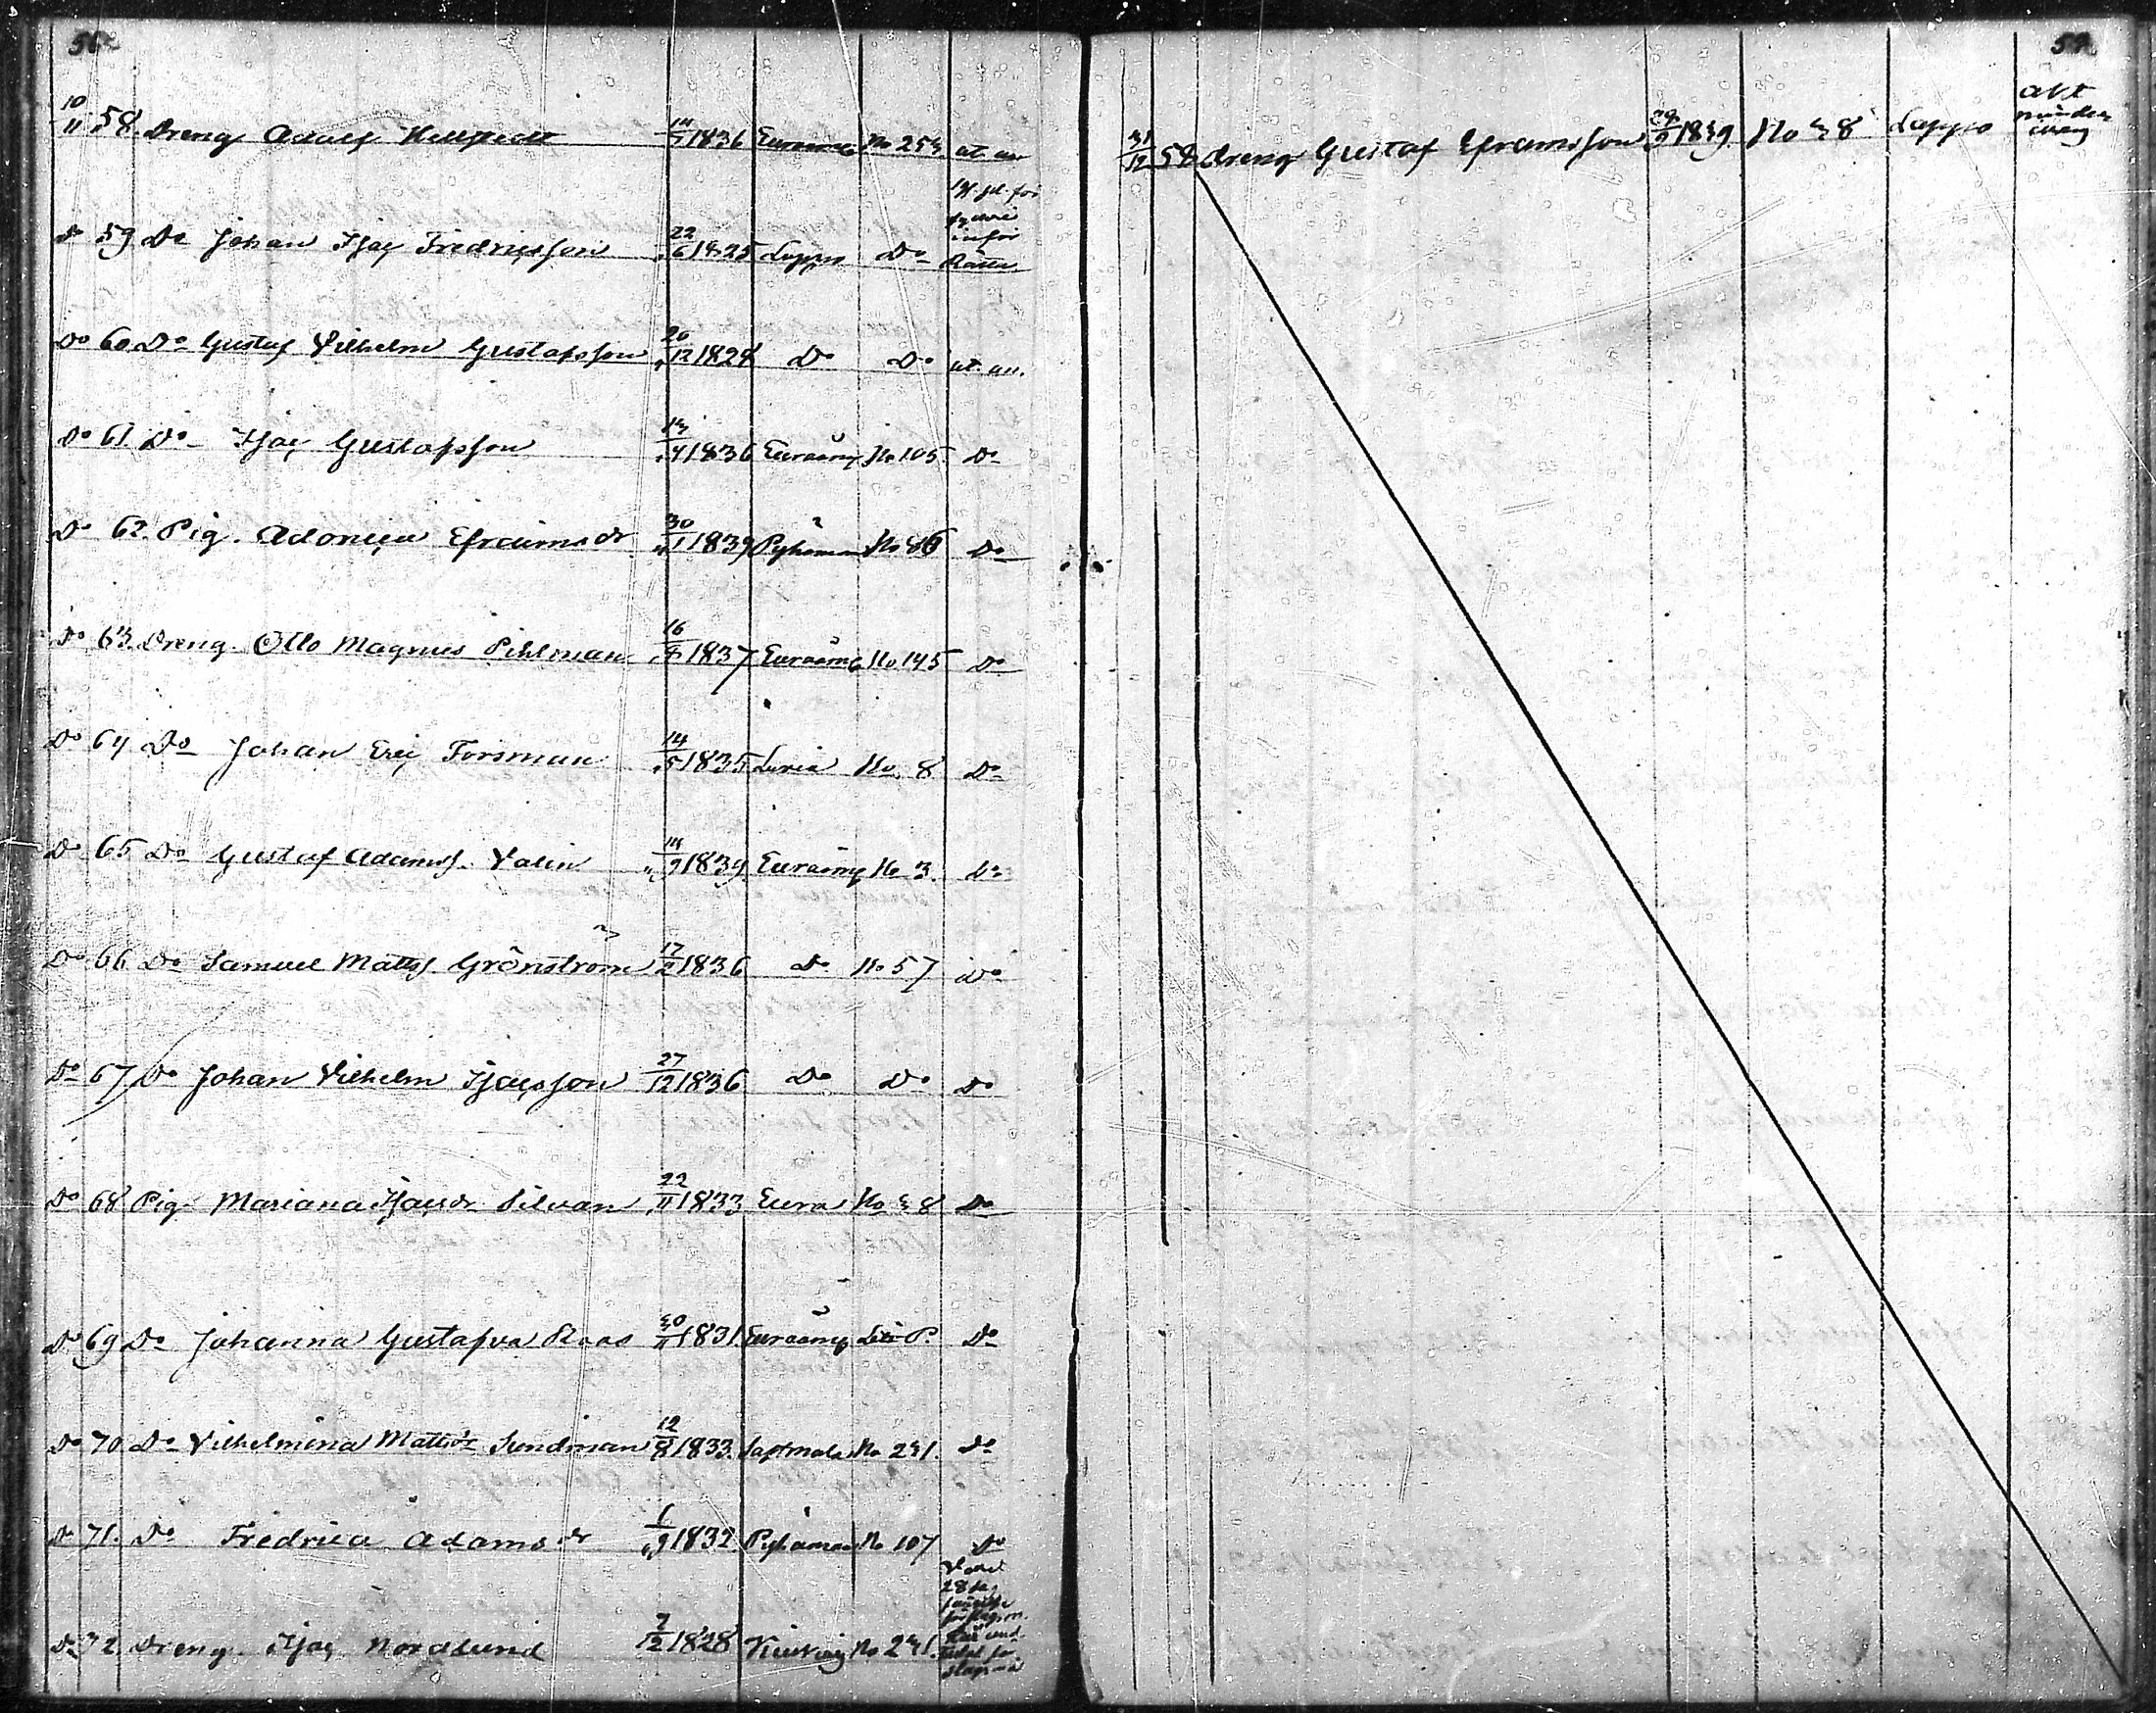 10/11 58. Dreng Adolf Hellstedt 14/5 1836 Euraåmi No 253. at. an
D° 59 D° Johan Isac Fredricsson 22/6 1825 Lappo D° för inför Rätta
D° 60 D° Gustaf Vilhelm Gustafsson 26/12 1828 D° D° at. an.
D° 61. D° Isac Gustafsson 13/4 1836 Euraåmi No 105 D°
D° 62. Pig. Adonica Efraimsdr 30/1 1839 Pyhämaa No 86 D°
D° 63. Dreng. Otto Magnus Pihlman 16/4 1837 Euraåmi No 145 D°
D° 64 D° Johan Eric Forsman 14/5 1835 Luvia No 8 D°
D° 65 D° Gustaf Adamss. Valin 14/9 1839. Euraåmi No 3. D°
D° 66 D° Samuel Mattss Grönström 17/2 1836 D° No 57 D°
D° 67 D° Johan Vilhelm Isacsson 27/12 1836 D° D° D°
D° 68 Pig. Mariana Isacsdr Silvan 22/11 1833 Eura No 38 D°
D° 69 D° Johanna Gustafva Roos 30/11 1831. Euraåmi Litt P. D°
D° 70 D° Vilhelmina Mattsdr Sundman 12/8 1833. Sastmola No 231. D°
D° 71. D° Fredrica Adamsdr 1/9 1832. Pyhämaa No 107 D°
D° 72. Dreng. Isac Nordlund 7/2 1828 Kiukais No 231.
31/12 58. Dreng Gustaf Efraimsson 28/9 1839 No 38 Lappo